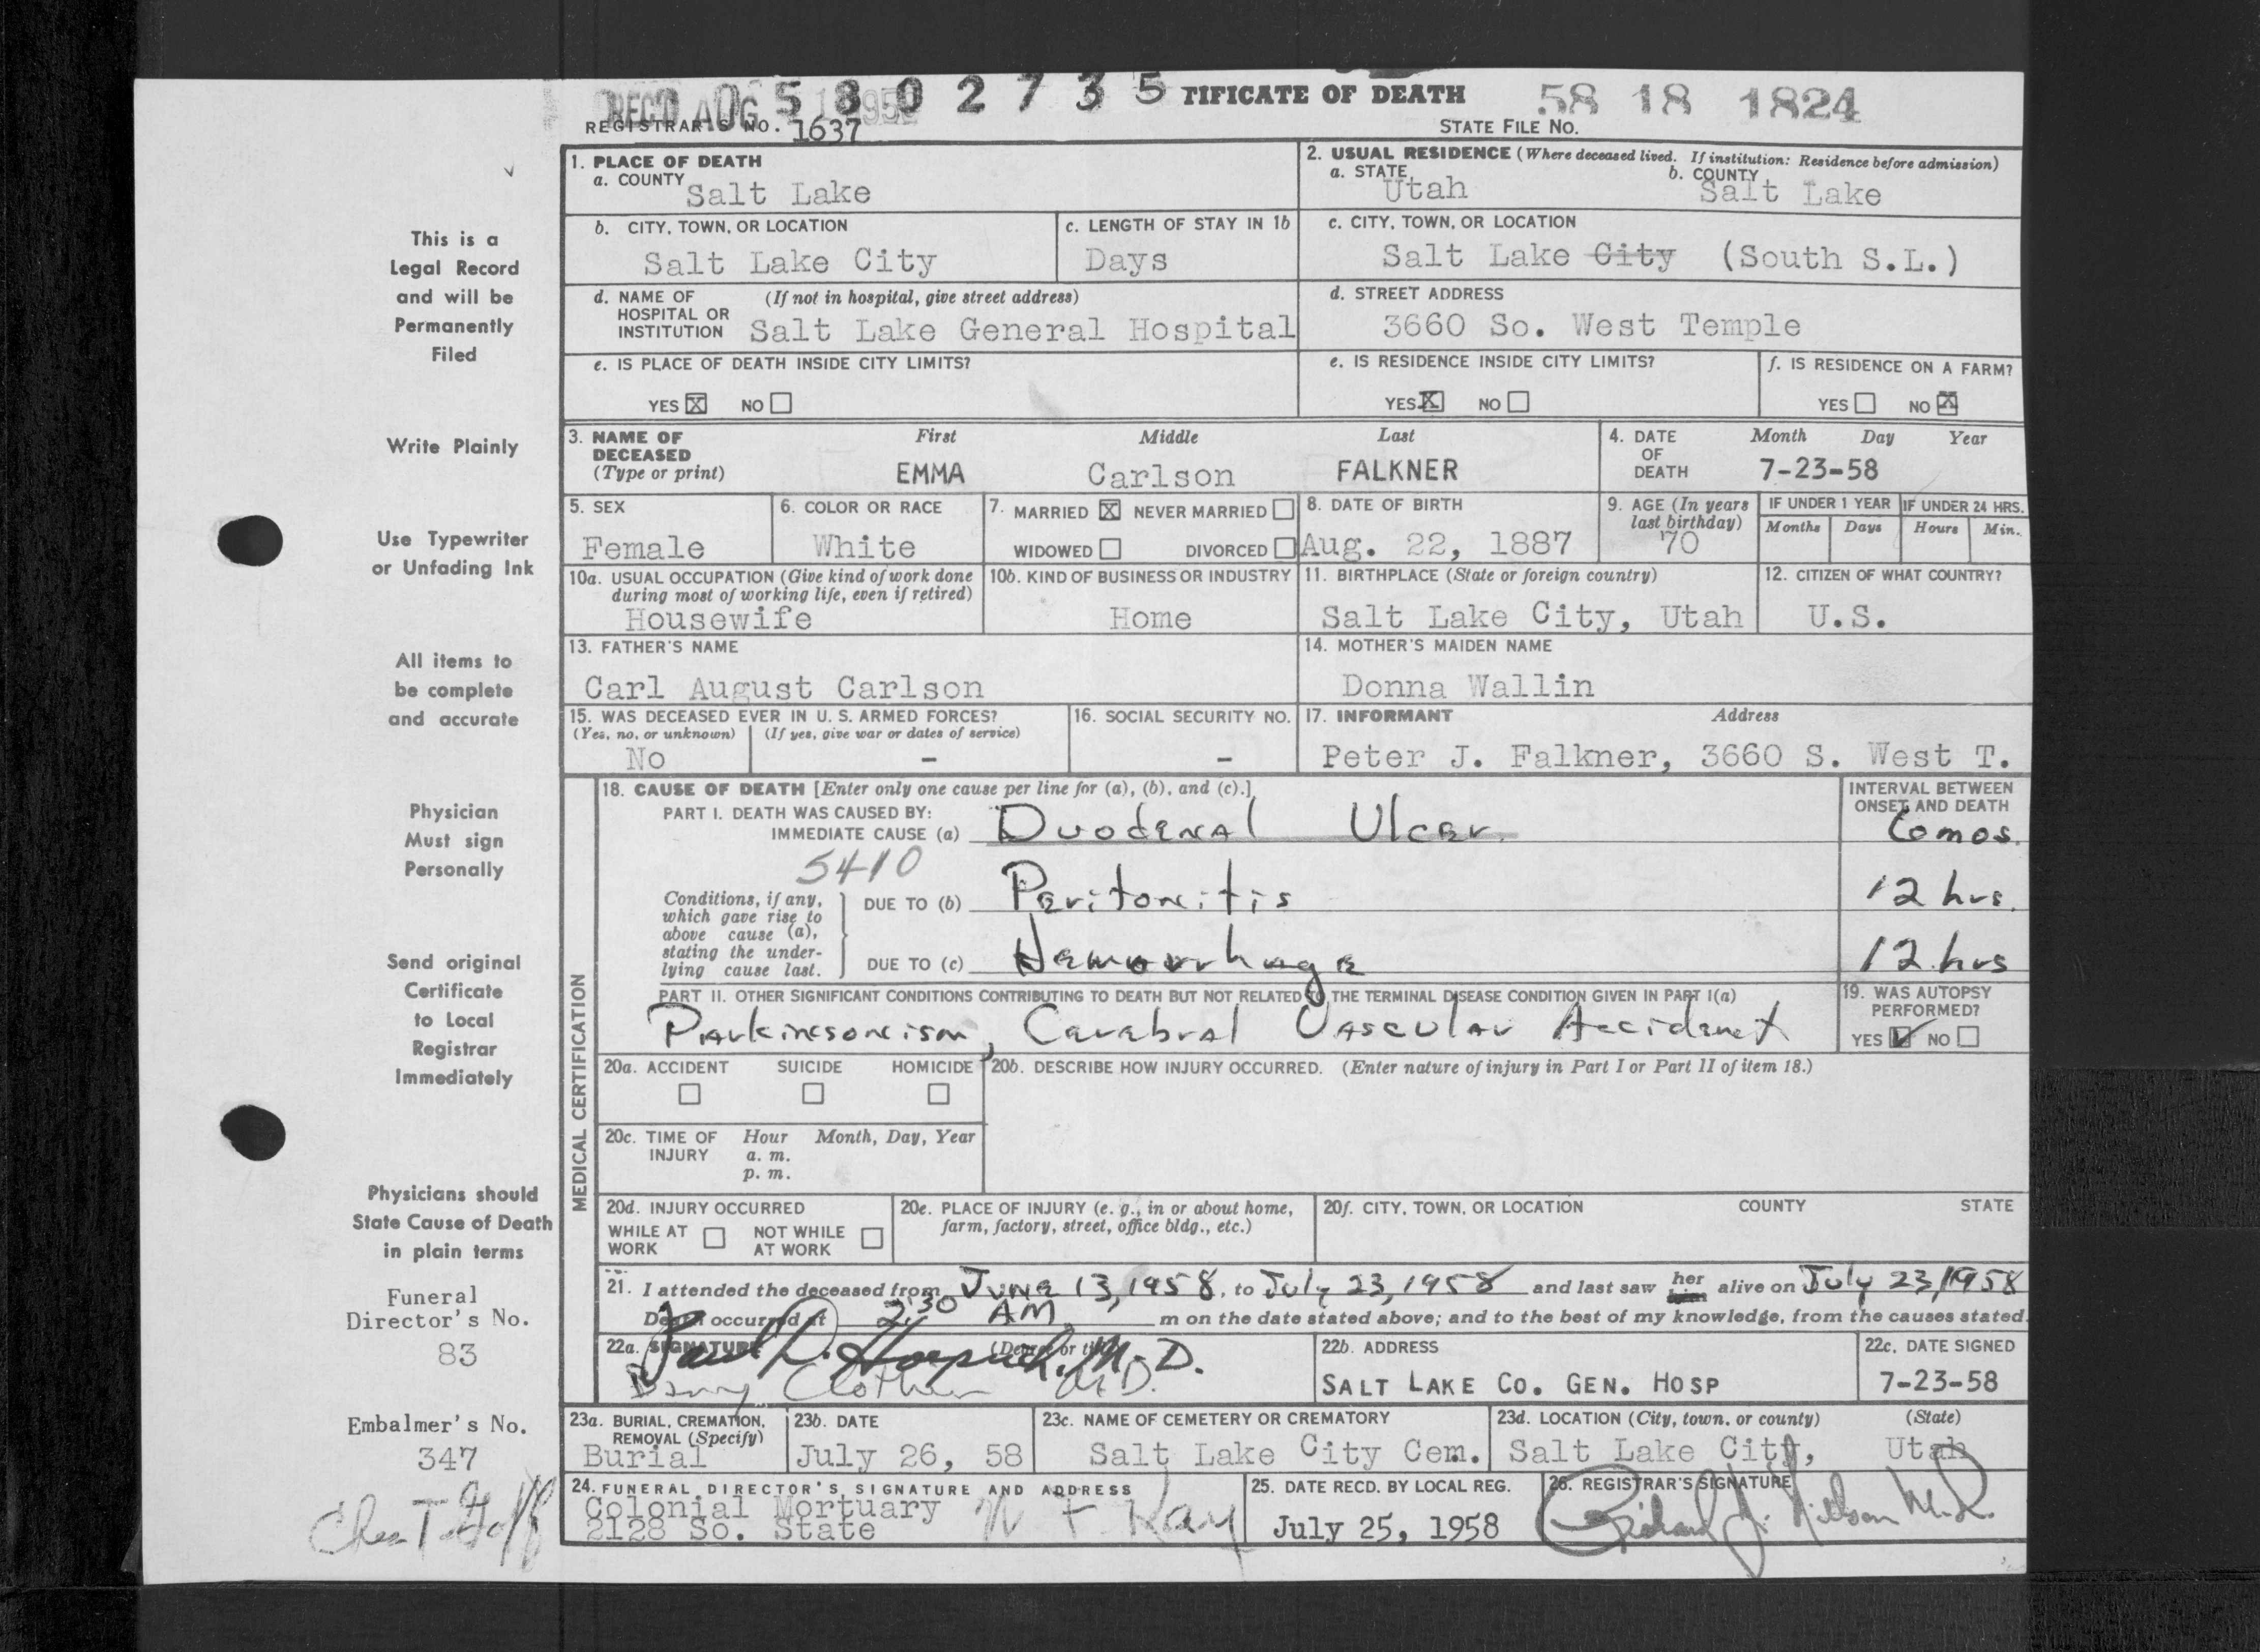 REC'D AUG 5802735 TIFICATE OF DEATH 58 18 1824
REGISTRAR'S NO. 1637 STATE FILE NO.
1. PLACE OF DEATH
a. COUNTY Salt Lake
2. USUAL RESIDENCE (Where deceased lived. If institution: Residence before admission)
a. STATE Utah b. COUNTY Salt Lake
b. CITY, TOWN, OR LOCATION Salt Lake City
c. LENGTH OF STAY IN 1b Days
c. CITY, TOWN, OR LOCATION
Salt Lake City (South S.L.)
d. NAME OF HOSPITAL OR INSTITUTION (If not in hospital, give street address)
Salt Lake General Hospital
d. STREET ADDRESS
3660 So. West Temple
e. IS PLACE OF DEATH INSIDE CITY LIMITS?
YES X NO
e. IS RESIDENCE INSIDE CITY LIMITS?
YES X NO
f. IS RESIDENCE ON A FARM?
YES NO X
3. NAME OF DECEASED (Type or print)
First Middle Last
EMMA Carlson FALKNER
4. DATE OF DEATH Month Day Year
7-23-58
5. SEX
Female
6. COLOR OR RACE
White
7. MARRIED X NEVER MARRIED
WIDOWED DIVORCED
8. DATE OF BIRTH
Aug. 22, 1887
9. AGE (In years last birthday)
70
IF UNDER 1 YEAR
Months Days
IF UNDER 24 HRS.
Hours Min.
10a. USUAL OCCUPATION (Give kind of work done during most of working life, even if retired)
Housewife
10b. KIND OF BUSINESS OR INDUSTRY
Home
11. BIRTHPLACE (State or foreign country)
Salt Lake City, Utah
12. CITIZEN OF WHAT COUNTRY?
U.S.
13. FATHER'S NAME
Carl August Carlson
14. MOTHER'S MAIDEN NAME
Donna Wallin
15. WAS DECEASED EVER IN U. S. ARMED FORCES?
(Yes, no, or unknown) (If yes, give war or dates of service)
No -
16. SOCIAL SECURITY NO.
-
17. INFORMANT Address
Peter J. Falkner, 3660 S. West T.
MEDICAL CERTIFICATION
18. CAUSE OF DEATH [Enter only one cause per line for (a), (b), and (c).]
INTERVAL BETWEEN ONSET AND DEATH
PART I. DEATH WAS CAUSED BY:
IMMEDIATE CAUSE (a) Duodenal Ulcer 6 mos.
5410
Conditions, if any, which gave rise to above cause (a), stating the underlying cause last.
DUE TO (b) Peritonitis 12 hrs.
DUE TO (c) Hemorrhage 12 hrs
PART II. OTHER SIGNIFICANT CONDITIONS CONTRIBUTING TO DEATH BUT NOT RELATED TO THE TERMINAL DISEASE CONDITION GIVEN IN PART I(a)
Parkinsonism, Cerebral Vascular Accident
19. WAS AUTOPSY PERFORMED?
YES ✓ NO
20a. ACCIDENT SUICIDE HOMICIDE
20b. DESCRIBE HOW INJURY OCCURRED. (Enter nature of injury in Part I or Part II of item 18.)
20c. TIME OF INJURY Hour Month, Day, Year
a. m.
p. m.
20d. INJURY OCCURRED
WHILE AT WORK NOT WHILE AT WORK
20e. PLACE OF INJURY (e. g., in or about home, farm, factory, street, office bldg., etc.)
20f. CITY, TOWN, OR LOCATION COUNTY STATE
21. I attended the deceased from June 13, 1958, to July 23, 1958 and last saw her alive on July 23, 1958
Death occurred at 2:30 AM m on the date stated above; and to the best of my knowledge, from the causes stated.
22a. SIGNATURE (Degree or title)
Paul D. M.D.
M.D.
22b. ADDRESS
SALT LAKE CO. GEN. HOSP
22c. DATE SIGNED
7-23-58
23a. BURIAL, CREMATION, REMOVAL (Specify)
Burial
23b. DATE
July 26, 58
23c. NAME OF CEMETERY OR CREMATORY
Salt Lake City Cem.
23d. LOCATION (City, town, or county) (State)
Salt Lake City, Utah
24. FUNERAL DIRECTOR'S SIGNATURE AND ADDRESS
Colonial Mortuary
2128 So. State
25. DATE RECD. BY LOCAL REG.
July 25, 1958
26. REGISTRAR'S SIGNATURE
This is a
Legal Record
and will be
Permanently
Filed
Write Plainly
Use Typewriter
or Unfading Ink
All items to
be complete
and accurate
Physician
Must sign
Personally
Send original
Certificate
to Local
Registrar
Immediately
Physicians should
State Cause of Death
in plain terms
Funeral
Director's No.
83
Embalmer's No.
347